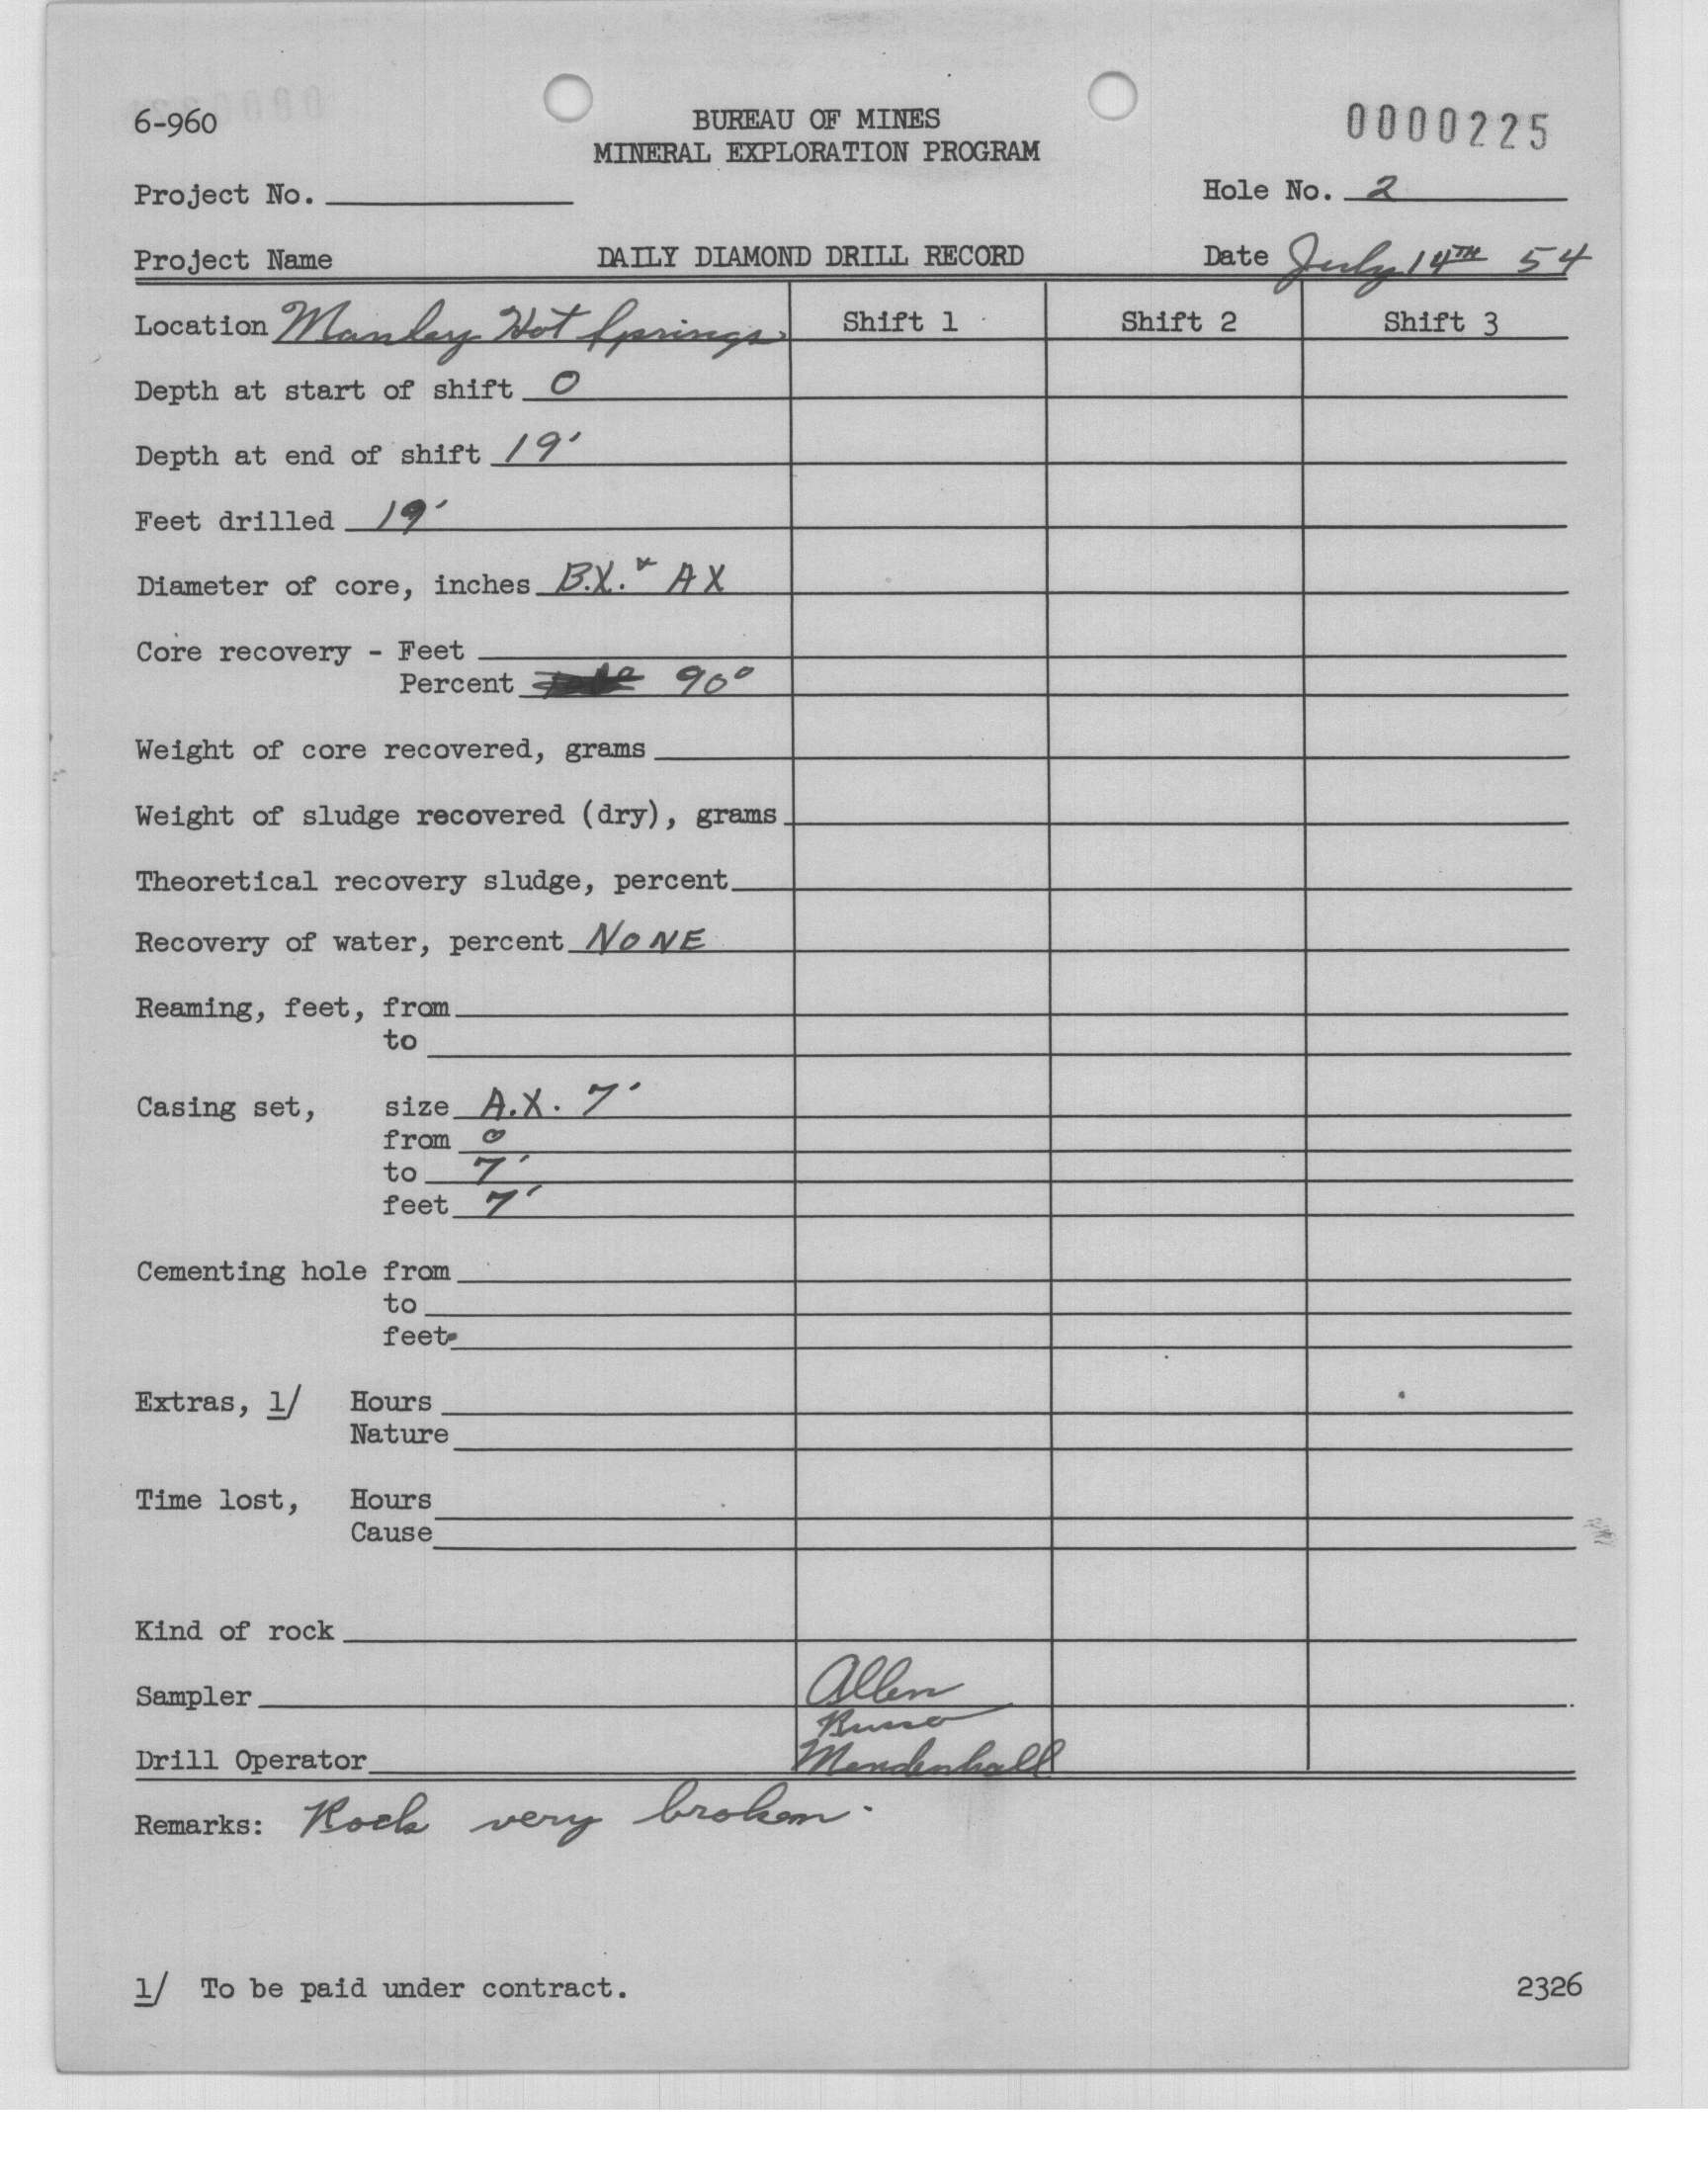 6-960
BUREAU OF MINES
0000225
MINERAL EXPLORATION PROGRAM
Project No.
Hole No. 2
Project Name
DAILY DIAMOND DRILL RECORD
Date July 14TH 54
Location Manley Hot Springs
Shift 1
Shift 2
Shift 3
Depth at start of shift 0
Depth at end of shift 19'
Feet drilled 19'
Diameter of core, inches B.X. & AX
Core recovery - Feet
Percent 90°
Weight of core recovered, grams
Weight of sludge recovered (dry), grams
Theoretical recovery sludge, percent
Recovery of water, percent NONE
Reaming, feet, from
to
Casing set, size A.X. 7'
from 0
to 7'
feet 7'
Cementing hole from
to
feet
Extras, 1/ Hours
Nature
Time lost, Hours
Cause
Kind of rock
Sampler Allen
Russo
Drill Operator Mendenhall
Remarks: Rock very broken.
1/ To be paid under contract.
2326